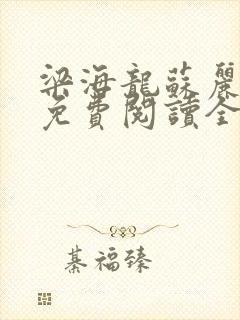 梁海龍蘇麗
免費閱讀全
綦福臻